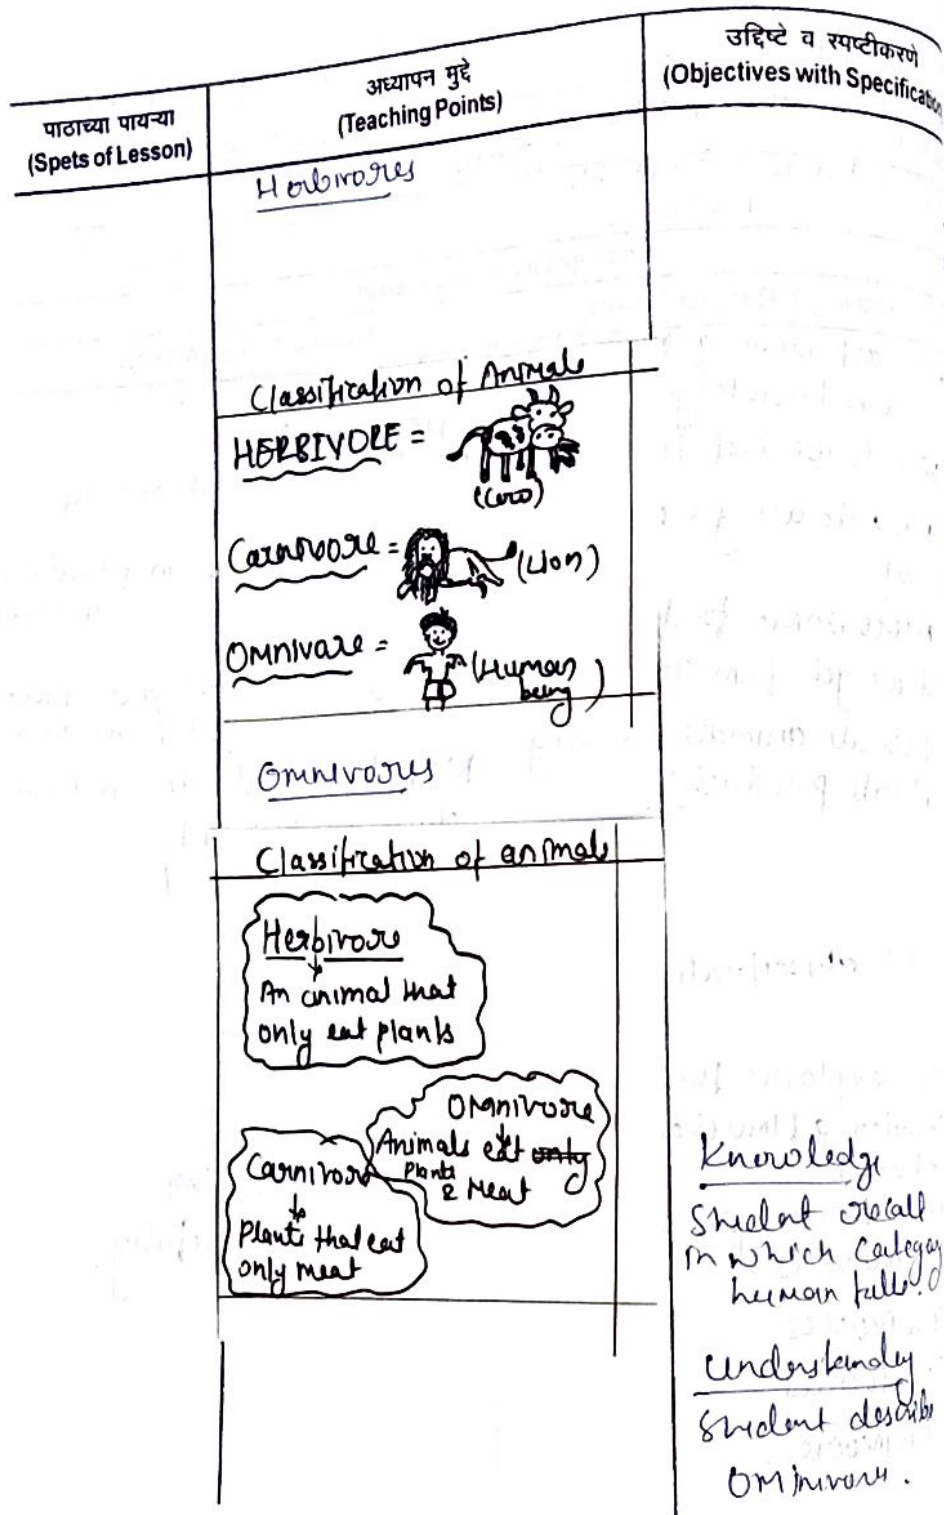 पाठाच्या पायऱ्या
(Spets of Lesson)
अध्यापन मुद्दे
(Teaching Points)
उद्दिष्टे व स्पष्टीकरणे
(Objectives with Specification
Herbivores
Classification of Animals
HERBIVORE =
(Cow)
Carnivore =
(Lion)
OMNIVARE =
(Human
being)
Omnivores
Classification of animals
Herbivore
An animal that
only eat plants
Omnivore
Animals eat only
Plants
& Meat
Carnivore
Plants that eat
only meat
Knowledge
Student recall
in which Category
human falls.
Understanding
Student describe
Omnivore.